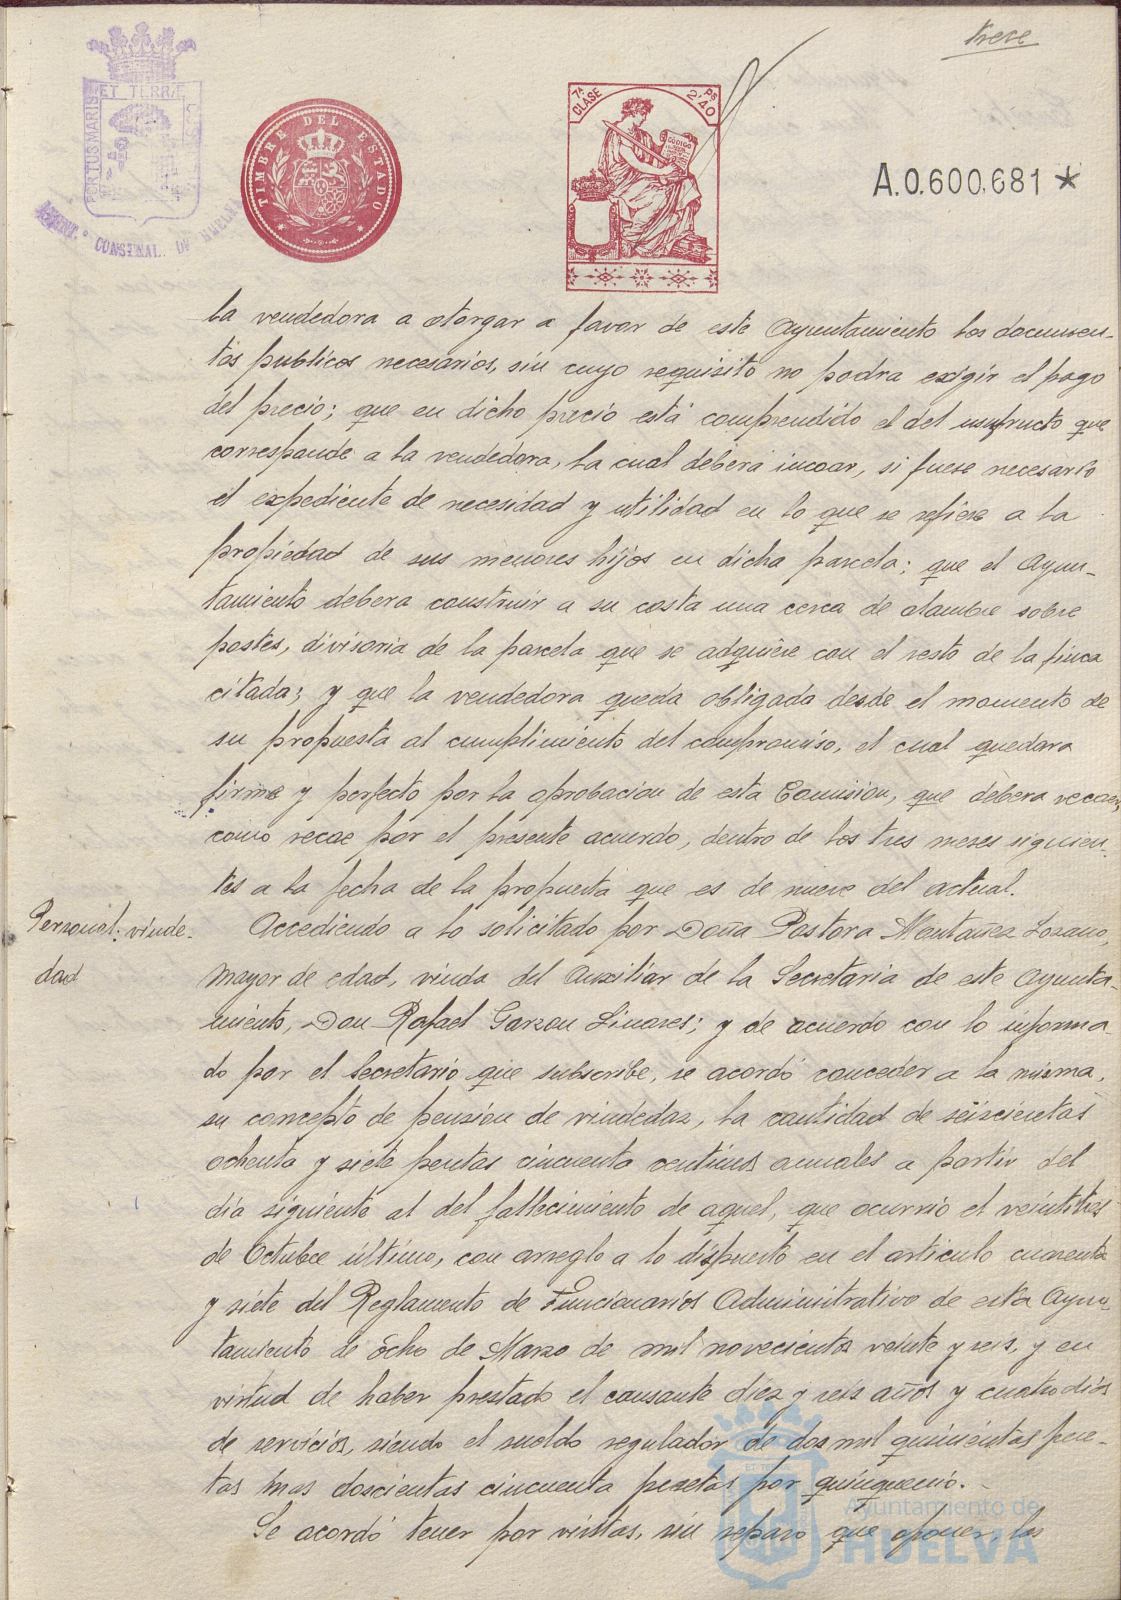 trece
PORTUS MARIS ET TERRÆ CUSTODIA
AYUNT.º CONSTNAL. DE HUELVA
TIMBRE DEL ESTADO
7ª CLASE
Ps 2'40
CÓDIGO
A.0.600,681 *
la vendedora a otorgar a favor de este Ayuntamiento los documen-
tos publicos necesarios, sin cuyo requisito no podra exigir el pago
del precio; que en dicho precio está comprendido el del usufructo que
corresponde a la vendedora, la cual deberá incoar, si fuese necesario
el expediente de necesidad y utilidad en lo que se refiere a la
propiedad de sus menores hijos en dicha parcela; que el Ayun-
tamiento debera construir a su costa una cerca de alambre sobre
postes, divisoria de la parcela que se adquiere con el resto de la finca
citada; y que la vendedora queda obligada desde el momento de
su propuesta al cumplimiento del compromiso, el cual quedara
firme y perfecto por la aprobacion de esta Comision, que debera recaer,
como recae por el presente acuerdo, dentro de los tres meses siguien-
tes a la fecha de la propuesta que es de nueve del actual.
Personal: viude-
dad
Accediendo a lo solicitado por Doña Pastora Montañez Lozano,
mayor de edad, viuda del Auxiliar de la Secretaria de este Ayunta-
miento, Don Rafael Garzon Linares; y de acuerdo con lo informa-
do por el Secretario que subscribe, se acordó conceder a la misma,
en concepto de pensión de viudedaz, la cantidad de seiscientas
ochenta y siete pesetas cincuenta centimos anuales a partir del
dia siguiente al del fallecimiento de aquel, que ocurrió el veintitres
de Octubre último, con arreglo a lo dispuesto en el articulo cuarenta
y siete del Reglamento de Funcionarios Administrativo de esta Ayun-
tamiento de ocho de Marzo de mil novecientos veinte y seis, y en
virtud de haber prestado el causante diez y seis años y cuatro dias
de servicios, siendo el sueldo regulador de dos mil quinientas pese-
tas mas doscientas cincuenta pesetas por quinquenio.
Se acordó tener por vistas, sin reparo que oponer, las
Ayuntamiento de
HUELVA